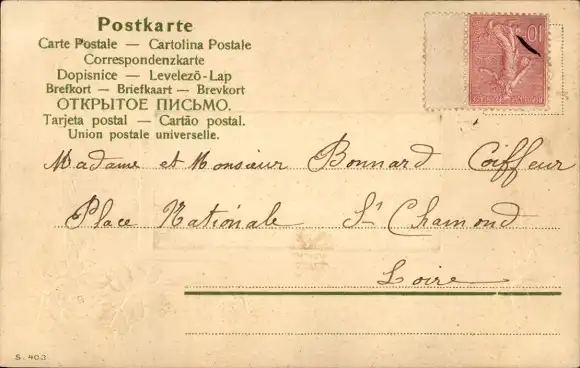 Postkarte
Carte Postale — Cartolina Postale
Correspondenzkarte
Dopisnice — Levelezō-Lap
Brefkort — Briefkaart — Brevkort
ОТКРЫТОЕ ПИСЬМО.
Tarjeta postal — Cartão postal.
Union postale universelle.
10
Madame et Monsieur Bonnard Coiffeur
Place Nationale St Chamond
Loire
S. 403